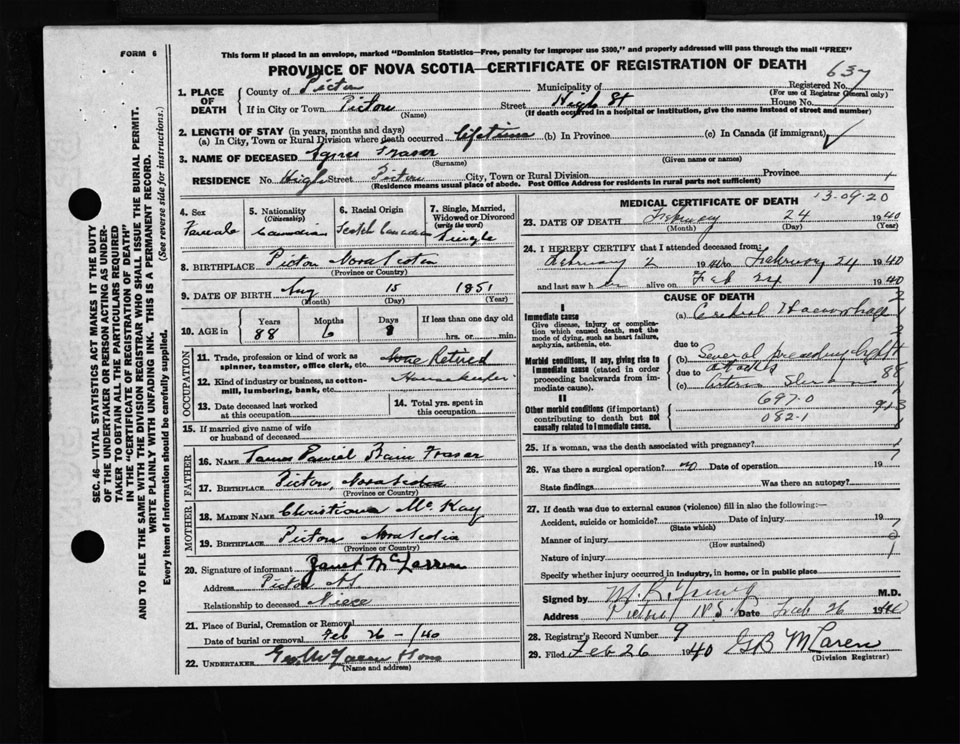 FORM 6
This form if placed in an envelope, marked "Dominion Statistics—Free, penalty for improper use $300," and properly addressed will pass through the mail "FREE"
PROVINCE OF NOVA SCOTIA—CERTIFICATE OF REGISTRATION OF DEATH
637
SEC. 46—VITAL STATISTICS ACT MAKES IT THE DUTY
OF THE UNDERTAKER OR PERSON ACTING AS UNDER-
TAKER TO OBTAIN ALL THE PARTICULARS REQUIRED
IN THE "CERTIFICATE OF REGISTRATION OF DEATH"
AND TO FILE THE SAME WITH THE DIVISION REGISTRAR WHO SHALL ISSUE THE BURIAL PERMIT.
WRITE PLAINLY WITH UNFADING INK. THIS IS A PERMANENT RECORD.
Every item of information should be carefully supplied. (See reverse side for instructions.)
1. PLACE OF DEATH
County of Pictou Municipality of Registered No.
(For use of Registrar General only)
If in City or Town Pictou Street High St House No.
(Name) (If death occurred in a hospital or institution, give the name instead of street and number)
2. LENGTH OF STAY (in years, months and days)
(a) In City, Town or Rural Division where death occurred lifetime (b) In Province (c) In Canada (if immigrant)
3. NAME OF DECEASED Agnes Fraser
(Surname) (Given name or names)
RESIDENCE No. High Street Pictou City, Town or Rural Division Province
(Residence means usual place of abode. Post Office Address for residents in rural parts not sufficient)
4. Sex
Female
5. Nationality
(Citizenship)
Canadian
6. Racial Origin
Scotch Canadian
7. Single, Married, Widowed or Divorced
(write the word)
Single
8. BIRTHPLACE Pictou Nova Scotia
(Province or Country)
9. DATE OF BIRTH Aug 15 1851
(Month) (Day) (Year)
10. AGE in Years Months Days If less than one day old
88 6 hrs. or min.
OCCUPATION
11. Trade, profession or kind of work as None Retired
spinner, teamster, office clerk, etc.
12. Kind of industry or business, as cotton- Housekeeper
mill, lumbering, bank, etc.
13. Date deceased last worked
at this occupation
14. Total yrs. spent in
this occupation
15. If married give name of wife
or husband of deceased
FATHER
16. NAME James Daniel Fraser
17. BIRTHPLACE Pictou, Nova Scotia
(Province or Country)
MOTHER
18. MAIDEN NAME Christiana McKay
19. BIRTHPLACE Pictou Nova Scotia
(Province or Country)
20. Signature of informant Janet McLarren
Address Pictou
Relationship to deceased Niece
21. Place of Burial, Cremation or Removal
Date of burial or removal Feb 26 - /40
22. UNDERTAKER Geo. McLaren
(Name and address)
MEDICAL CERTIFICATE OF DEATH
13-09-20
23. DATE OF DEATH February 24 1940
(Month) (Day) (Year)
24. I HEREBY CERTIFY that I attended deceased from:
February 2 1940 to February 24 1940
and last saw h alive on Feb 24 1940
CAUSE OF DEATH
I
Immediate cause
Give disease, injury or complica-
tion which caused death, not the
mode of dying, such as heart failure,
asphyxia, asthenia, etc.
(a) Cerebral Haemorrhage
due to
Morbid conditions, if any, giving rise to
immediate cause (stated in order
proceeding backwards from im-
mediate cause).
(b) Several preceding slight
attacks
due to
88
(c) Arterio
II
Other morbid conditions (if important)
contributing to death but not
causally related to immediate cause.
697.0
082.1
25. If a woman, was the death associated with pregnancy?
26. Was there a surgical operation? no Date of operation 19
State findings Was there an autopsy?
27. If death was due to external causes (violence) fill in also the following:—
Accident, suicide or homicide? Date of injury 19
(State which)
Manner of injury
(How sustained)
Nature of injury
Specify whether injury occurred in industry, in home, or in public place
Signed by M.R. Young M.D.
Address Pictou, N.S. Date Feb 26 1940
28. Registrar's Record Number 9
29. Filed Feb 26 1940 G B McLaren
(Division Registrar)